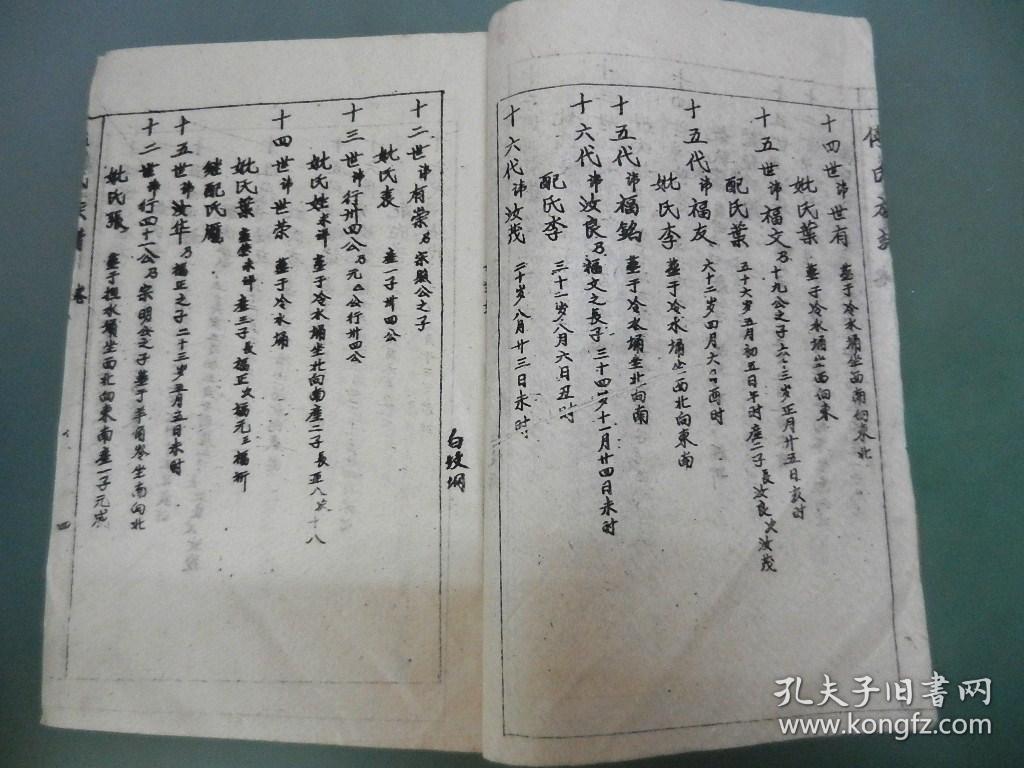 十四世讳世有 葬于冷水埇坐西南向东北
妣氏葉 葬于冷水埇坐西向东
十五世讳福文乃十九公之子六十三岁正月廿五日亥时
配氏葉 五十六岁五月初五日午时産二子長汝良次汝茂
十五代讳福友 六十二岁四月六日酉时
妣氏李 葬于冷水埇坐西北向東南
十五代讳福銘 葬于冷水埇坐北向南
十六代讳汝良乃福文之長子三十四岁十一月廿四日未时
配氏李 三十二岁八月六日丑时
十六代讳汝茂 二十岁八月廿三日未时
白坟埧
十二世讳有崇乃宗殿公之子
妣氏袁 産一子卅四公
十三世讳行卅四公乃元公行卅四公
妣氏姓未詳 葬于冷水埇坐北向南産二子長亚八次十八
十四世讳世荣 葬于冷水埇
妣氏葉 葬未詳 産三子長福正次福元三福新
继配氏
十五世讳汝华乃福正之子二十三岁五月五日未时
十二世讳行四十一公乃宗明公之子葬于羊角岑坐南向北
妣氏張 葬于担水埇坐西北向東南産一子元嵩
氏宗譜 卷
四
孔夫子旧書网
www.kongfz.com